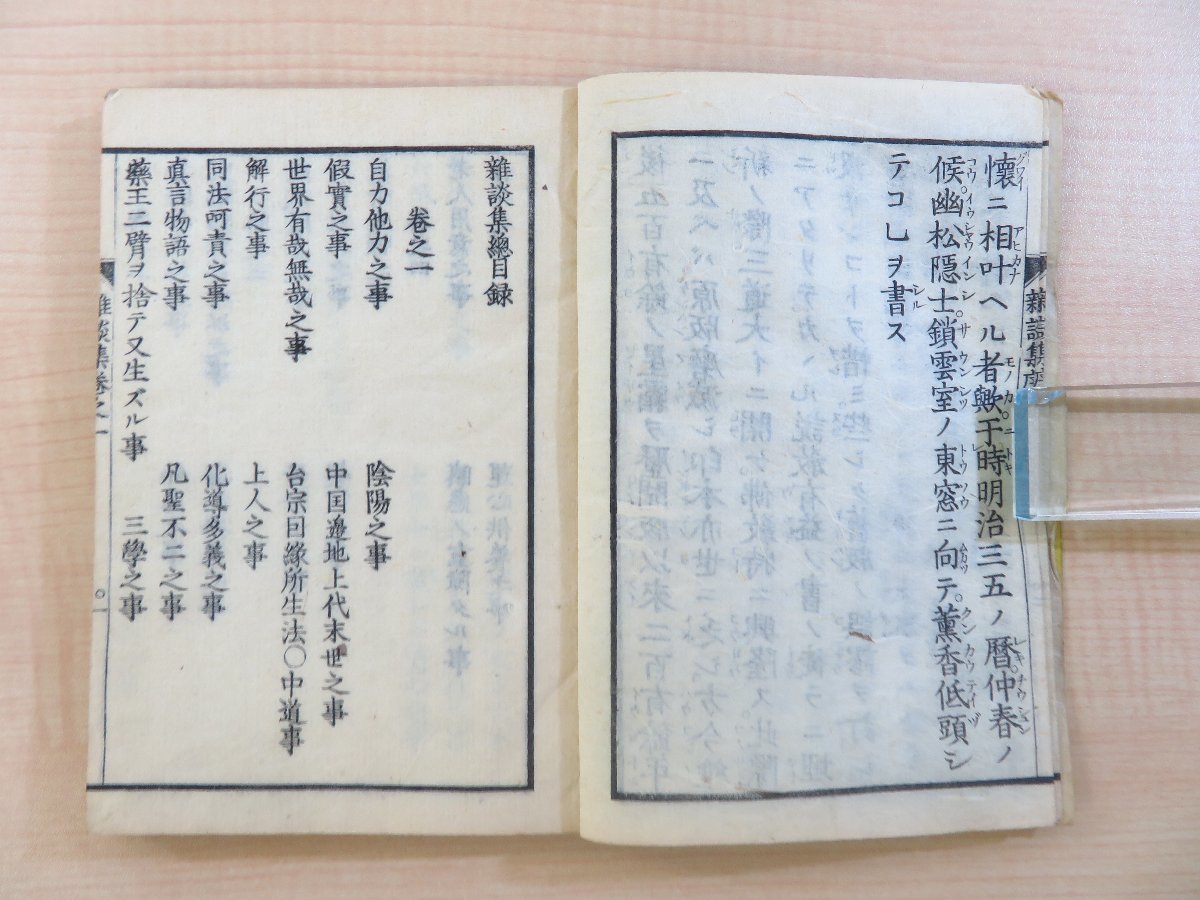 懐ニ相叶ヘル者歟于時明治三五ノ暦仲春ノ
候幽松隠士鎖雲室ノ東窓ニ向テ薫香低頭シ
テコレヲ書ス
雜談集總目録
巻之一
自力他力之事
陰陽之事
假實之事
中国邊地上代末世之事
世界有哉無哉之事
台宗曰縁所生法〇中道事
解行之事
上人之事
同法呵責之事
化導多義之事
真言物語之事
凡聖不二之事
藥王二臂ヲ捨テ又生ズル事
三學之事
雜談集巻之一